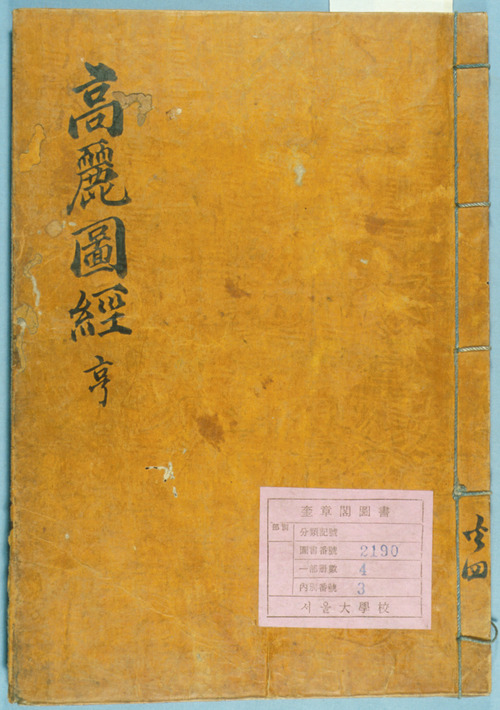 高麗圖經 亨
奎章閣圖書
部別
分類記號
圖書番號 2190
一部册數 4
內別番號 3
서울大學校
共四